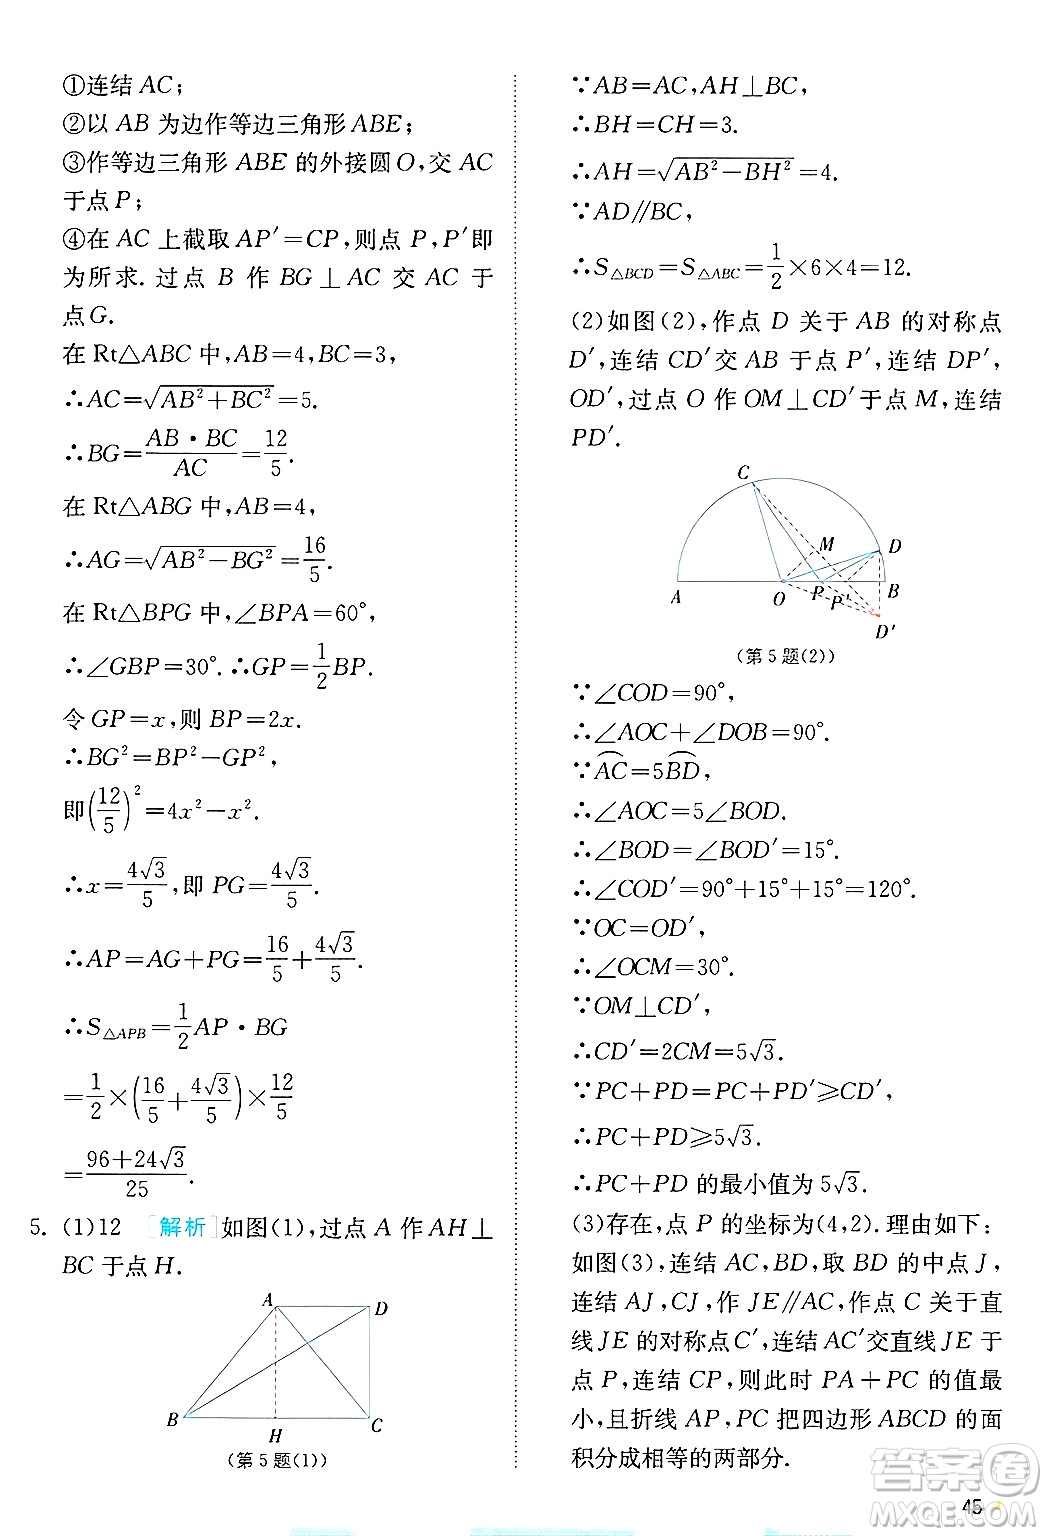 ①连结 AC；
②以 AB 为边作等边三角形 ABE；
③作等边三角形 ABE 的外接圆 O，交 AC
于点 P；
④在 AC 上截取 AP′＝CP，则点 P，P′即
为所求. 过点 B 作 BG⊥AC 交 AC 于
点 G.
在 Rt△ABC 中，AB＝4，BC＝3，
∴AC＝√(AB²＋BC²)＝5.
∴BG＝(AB·BC)/AC＝12/5.
在 Rt△ABG 中，AB＝4，
∴AG＝√(AB²－BG²)＝16/5.
在 Rt△BPG 中，∠BPA＝60°，
∴∠GBP＝30°. ∴GP＝1/2 BP.
令 GP＝x，则 BP＝2x.
∴BG²＝BP²－GP²，
即(12/5)²＝4x²－x².
∴x＝4√3/5，即 PG＝4√3/5.
∴AP＝AG＋PG＝16/5＋4√3/5.
∴S△APB＝1/2 AP·BG
＝1/2×(16/5＋4√3/5)×12/5
＝(96＋24√3)/25.
5. (1)12 [解析]如图(1)，过点 A 作 AH⊥
BC 于点 H.
A D
B H C
(第 5 题(1))
∵AB＝AC，AH⊥BC，
∴BH＝CH＝3.
∴AH＝√(AB²－BH²)＝4.
∵AD∥BC，
∴S△BCD＝S△ABC＝1/2×6×4＝12.
(2)如图(2)，作点 D 关于 AB 的对称点
D′，连结 CD′交 AB 于点 P′，连结 DP′，
OD′，过点 O 作 OM⊥CD′于点 M，连结
PD′.
C
M D
A O P P′ B
D′
(第 5 题(2))
∵∠COD＝90°，
∴∠AOC＋∠DOB＝90°.
∵⌒AC＝5⌒BD，
∴∠AOC＝5∠BOD.
∴∠BOD＝∠BOD′＝15°.
∴∠COD′＝90°＋15°＋15°＝120°.
∵OC＝OD′，
∴∠OCM＝30°.
∵OM⊥CD′，
∴CD′＝2CM＝5√3.
∵PC＋PD＝PC＋PD′⩾CD′，
∴PC＋PD⩾5√3.
∴PC＋PD 的最小值为 5√3.
(3)存在，点 P 的坐标为(4，2). 理由如下：
如图(3)，连结 AC，BD，取 BD 的中点 J，
连结 AJ，CJ，作 JE∥AC，作点 C 关于直
线 JE 的对称点 C′，连结 AC′交直线 JE 于
点 P，连结 CP，则此时 PA＋PC 的值最
小，且折线 AP，PC 把四边形 ABCD 的面
积分成相等的两部分.
答案圈
MXQE.COM
45